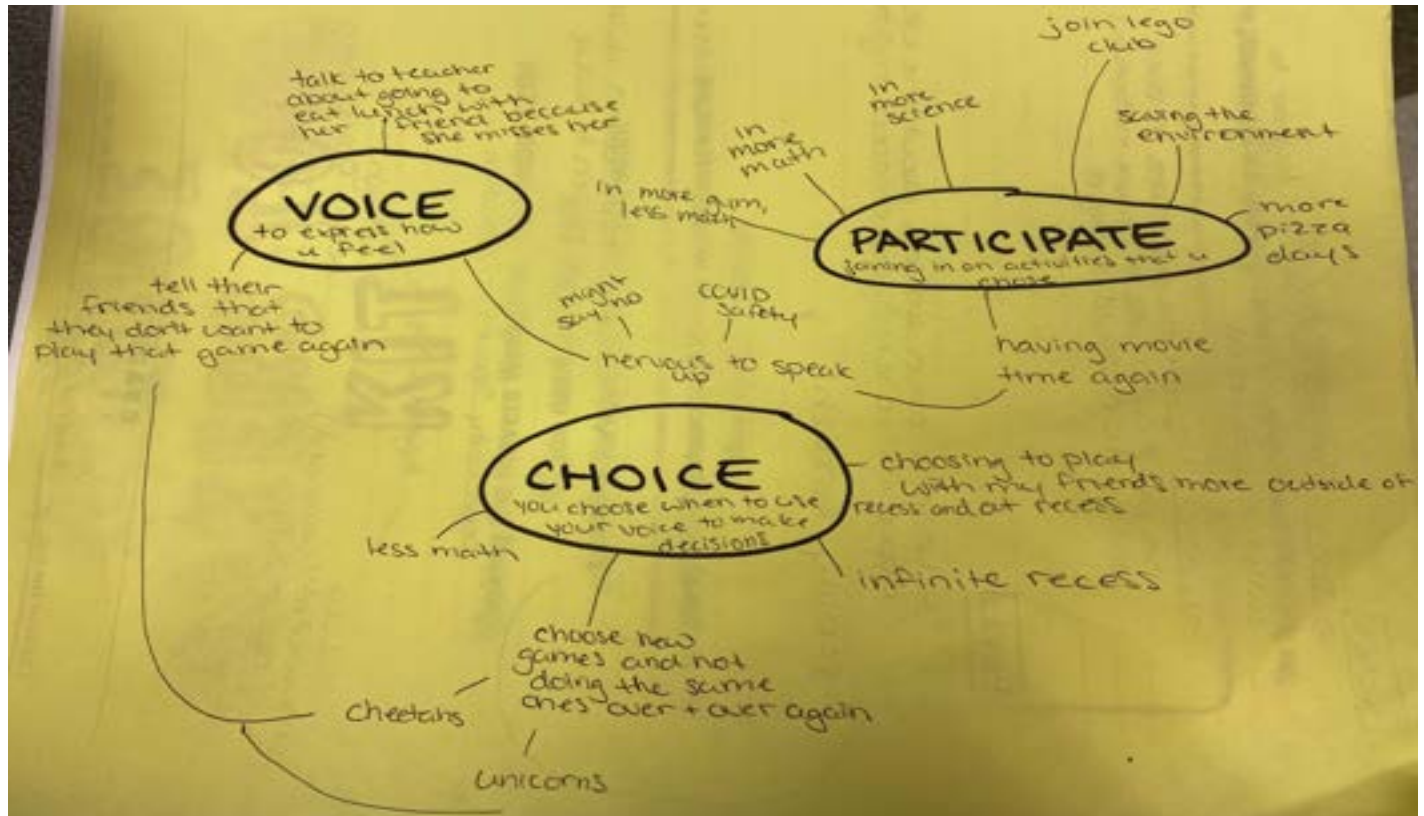 talk to teacher
about going to
eat lunch with
her friend because
she misses her
VOICE
to express how
u feel
tell their
friends that
they don't want to
play that game again
might
say no
COVID
safety
nervous to speak
up
join lego
club
in
more
science
saving the
environment
in
more
math
in more gym,
less math
PARTICIPATE
joining in on activities that u
chose
more
pizza
days
having movie
time again
CHOICE
you choose when to use
your voice to make
decisions
choosing to play
with my friends more outside of
recess and at recess
less math
infinite recess
choose new
games and not
doing the same
ones over + over again
cheetahs
unicorns